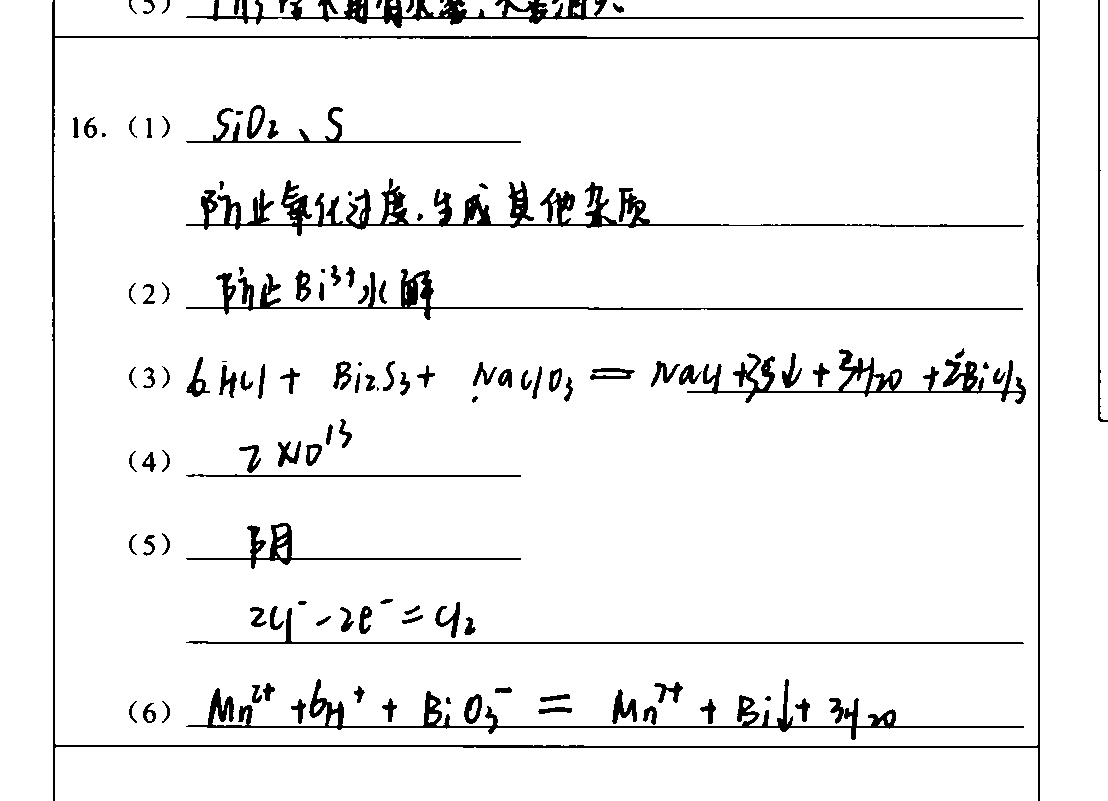 16. (1) SiO₂、S
防止氧化过度，生成其他杂质
(2) 防止Bi³⁺水解
(3) 6HCl + Bi₂S₃ + NaClO₃ = NaCl + 3S↓ + 3H₂O + 2BiCl₃
(4) 2×10¹³
(5) 阴
2Cl⁻ - 2e⁻ = Cl₂
(6) Mn²⁺ + 6H⁺ + BiO₃⁻ = Mn⁷⁺ + Bi↓ + 3H₂O